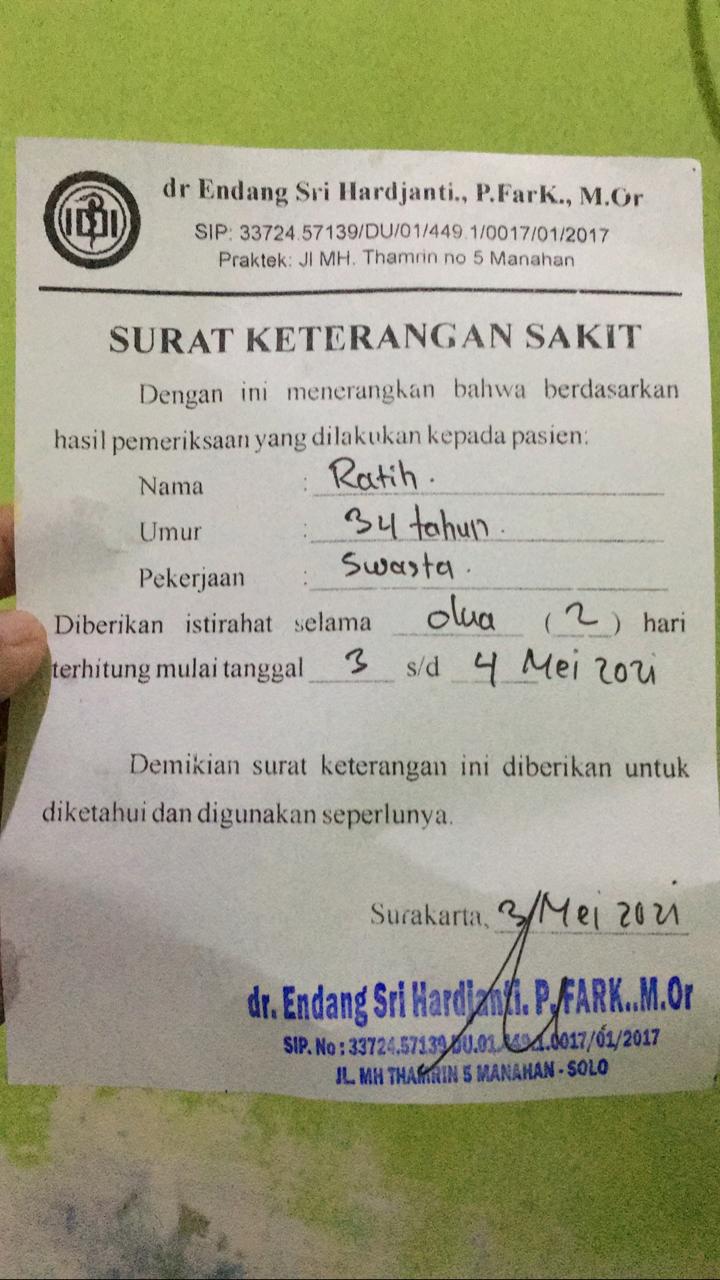 IDI
dr Endang Sri Hardjanti., P.FarK., M.Or
SIP: 33724.57139/DU/01/449.1/0017/01/2017
Praktek: Jl MH. Thamrin no 5 Manahan
SURAT KETERANGAN SAKIT
Dengan ini menerangkan bahwa berdasarkan
hasil pemeriksaan yang dilakukan kepada pasien:
Nama : Ratih.
Umur : 34 tahun.
Pekerjaan : Swasta.
Diberikan istirahat selama dua ( 2 ) hari
terhitung mulai tanggal 3 s/d 4 Mei 2021
Demikian surat keterangan ini diberikan untuk
diketahui dan digunakan seperlunya.
Surakarta, 3/Mei 2021
dr. Endang Sri Hardjanti. P.FARK..M.Or
SIP. No : 33724.57139/DU.01.449.1.0017/01/2017
JL. MH THAMRIN 5 MANAHAN - SOLO